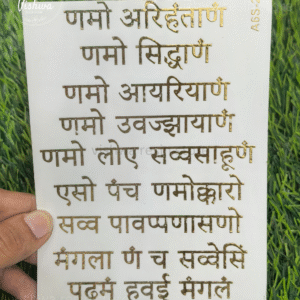 Vishwa
A65-
णमो अरिहंताणं
णमो सिद्धाणं
णमो आयरियाणं
णमो उवज्झायाणं
णमो लोए सव्वसाहूणं
एसो पंच णमोक्कारो
सव्व पावप्पणासणो
मंगला णं च सव्वेसिं
पढमं हवई मंगलं